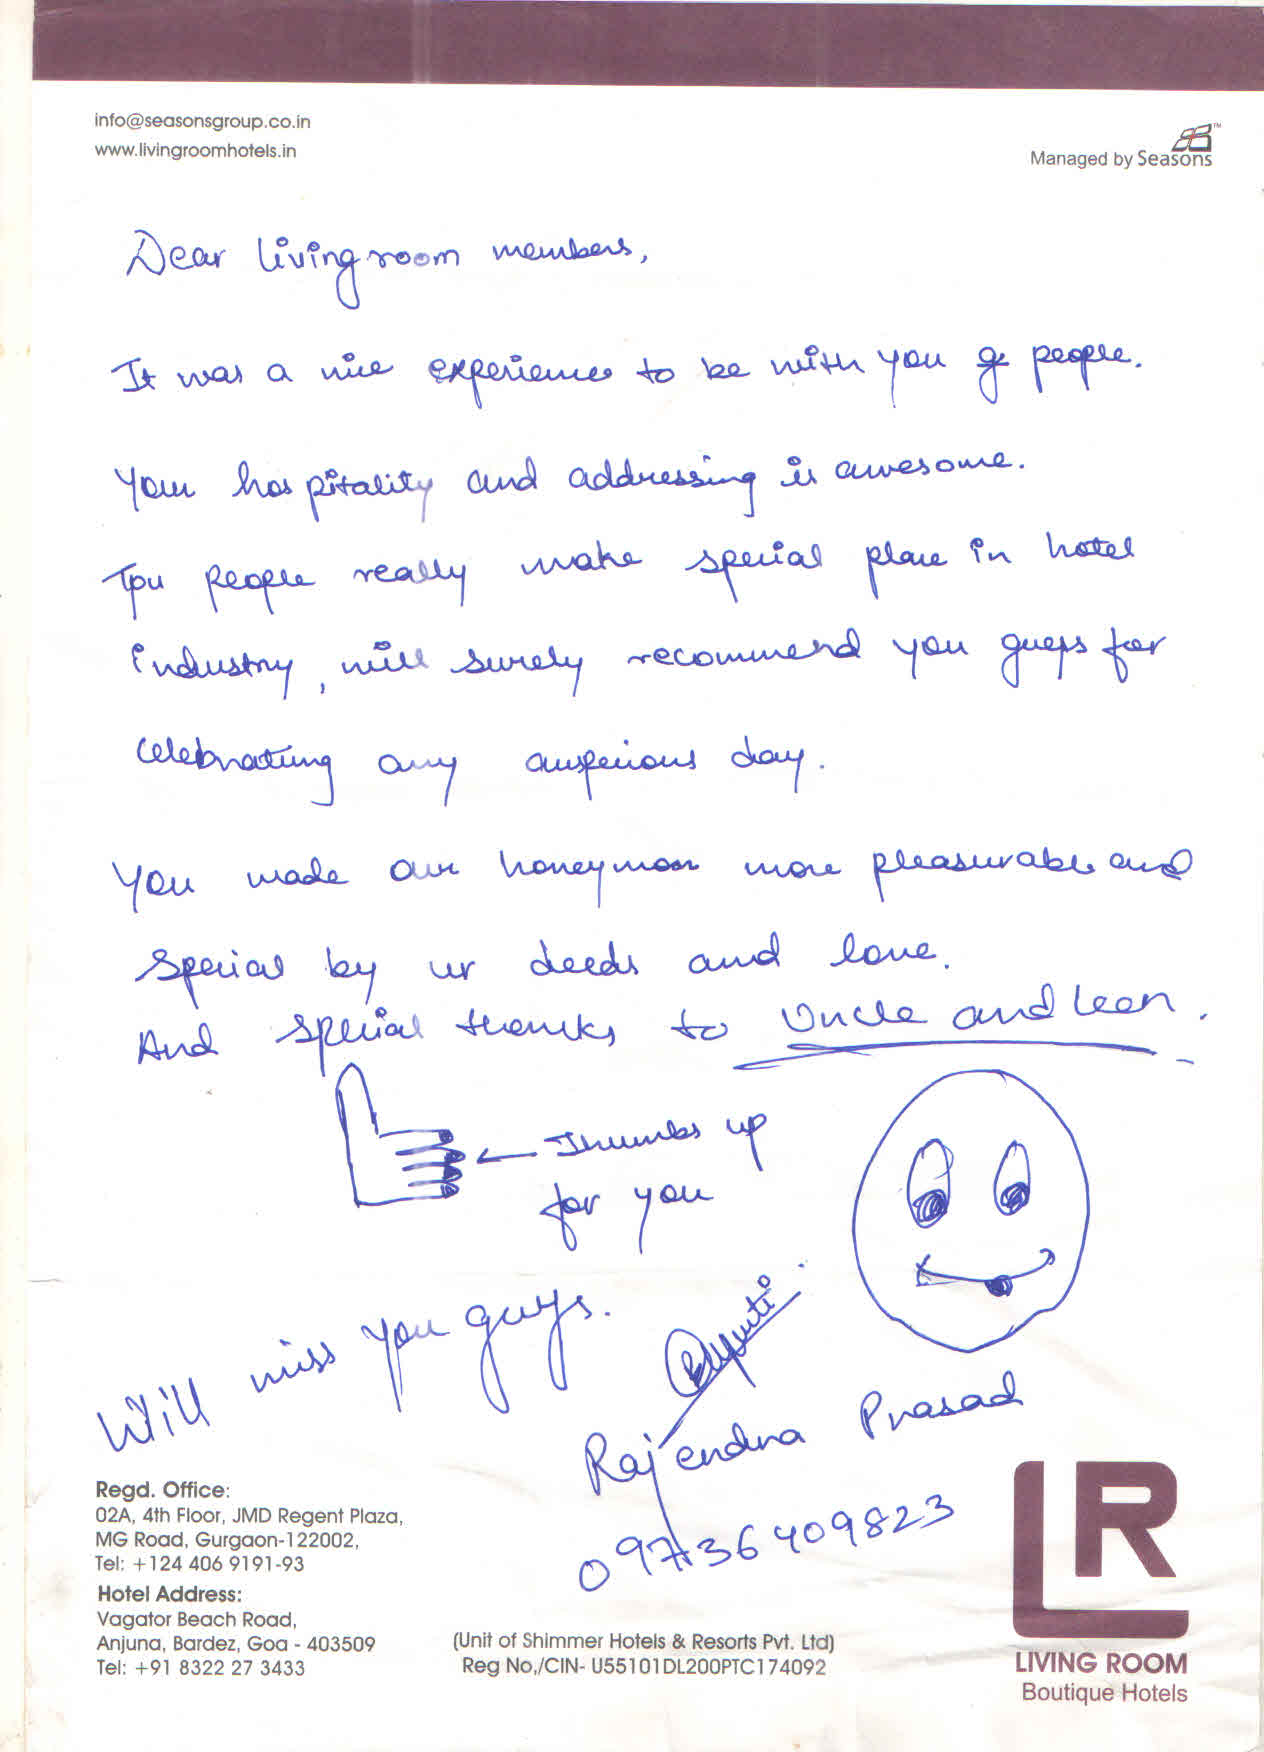 info@seasonsgroup.co.in
www.livingroomhotels.in
Managed by Seasons™
Dear living room members,
It was a nice experience to be with you people.
Your hospitality and addressing is awesome.
You people really make special place in hotel
industry, will surely recommend you guys for
celebrating any auspicious day.
You made our honeymoon more pleasurable and
special by ur deeds and love.
And special thanks to Uncle and Leen.
Thumbs up
for you
Will miss you guys.
Rajendra Prasad
09736409823
Regd. Office:
02A, 4th Floor, JMD Regent Plaza,
MG Road, Gurgaon-122002,
Tel: +124 406 9191-93
Hotel Address:
Vagator Beach Road,
Anjuna, Bardez, Goa - 403509
Tel: +91 8322 27 3433
(Unit of Shimmer Hotels & Resorts Pvt. Ltd)
Reg No,/CIN- U55101DL200PTC174092
LR
LIVING ROOM
Boutique Hotels